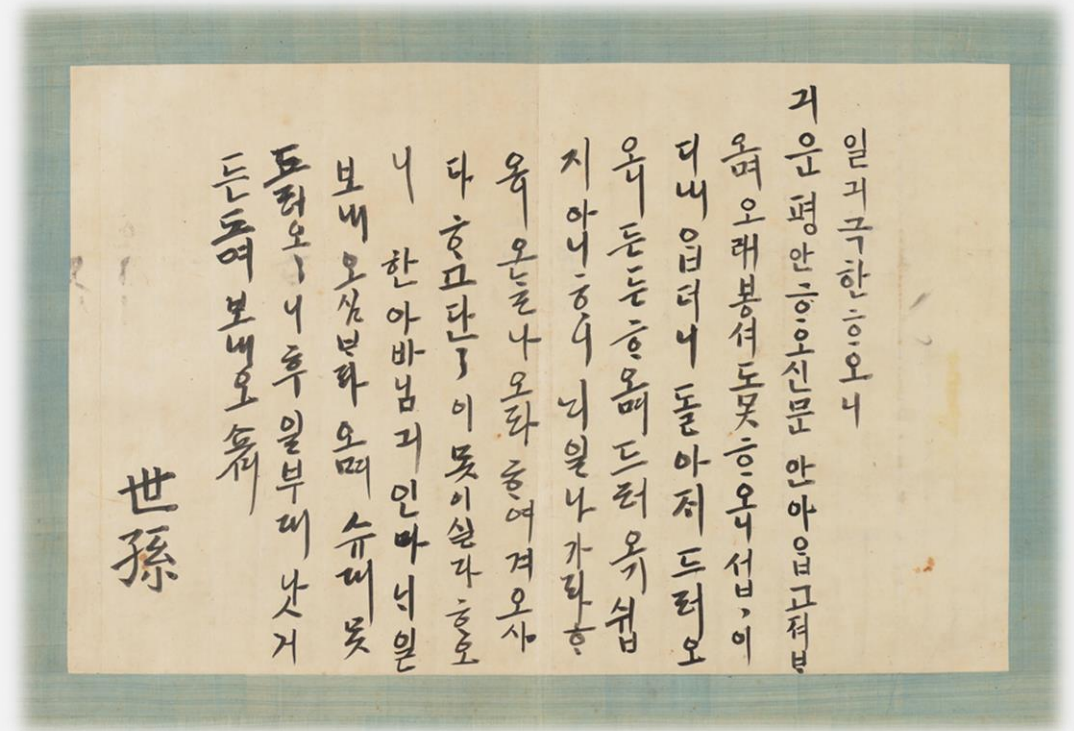 일긔극한ᄒᆞ오니
긔운평안ᄒᆞ오신문안아ᄋᆞᆸ고져ᄇᆞ
오며오래봉셔도못ᄒᆞ오니섭〻이
디내ᄋᆞᆸ더니돌아저드러오
오니든든ᄒᆞ오며드러오기쉽
지아니ᄒᆞ니ᄂᆡ일나가라ᄒᆞ
오ᄂᆞᆯ나오라ᄒᆞ여겨오시
다ᄒᆞ고단〻이못이실다ᄒᆞ오
니 한아바님긔인마ᄂᆡ일
보내오심ᄇᆞ라오며슈대못
드러오〻니후일부대낫거
든드려보내오쇼셔
世孫